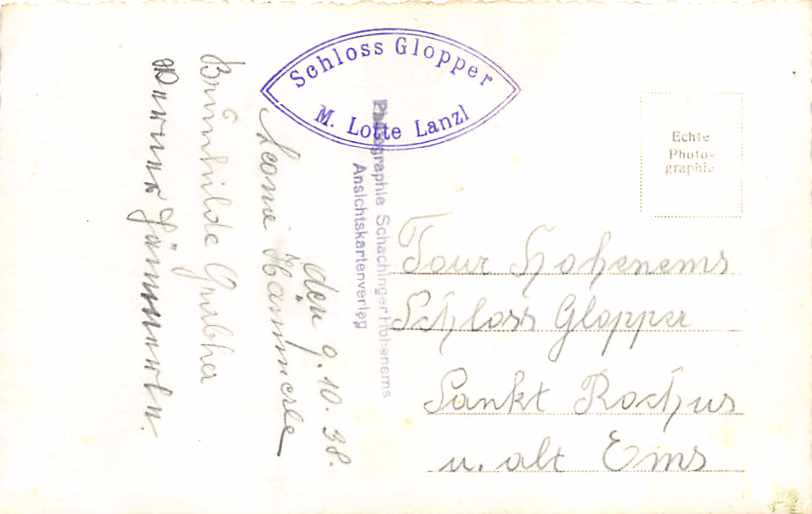 Schloss Glopper
M. Lotte Lanzl
Photographie Schachinger Hohenems
Ansichtskartenverlag
Echte
Photo-
graphie
Tour Hohenems
Schloss Glopper
Sankt Rochus
u. alt Ems
den 9.10.38.
Leonie Hämmerle
Brunhilde
Werner Hämmerle